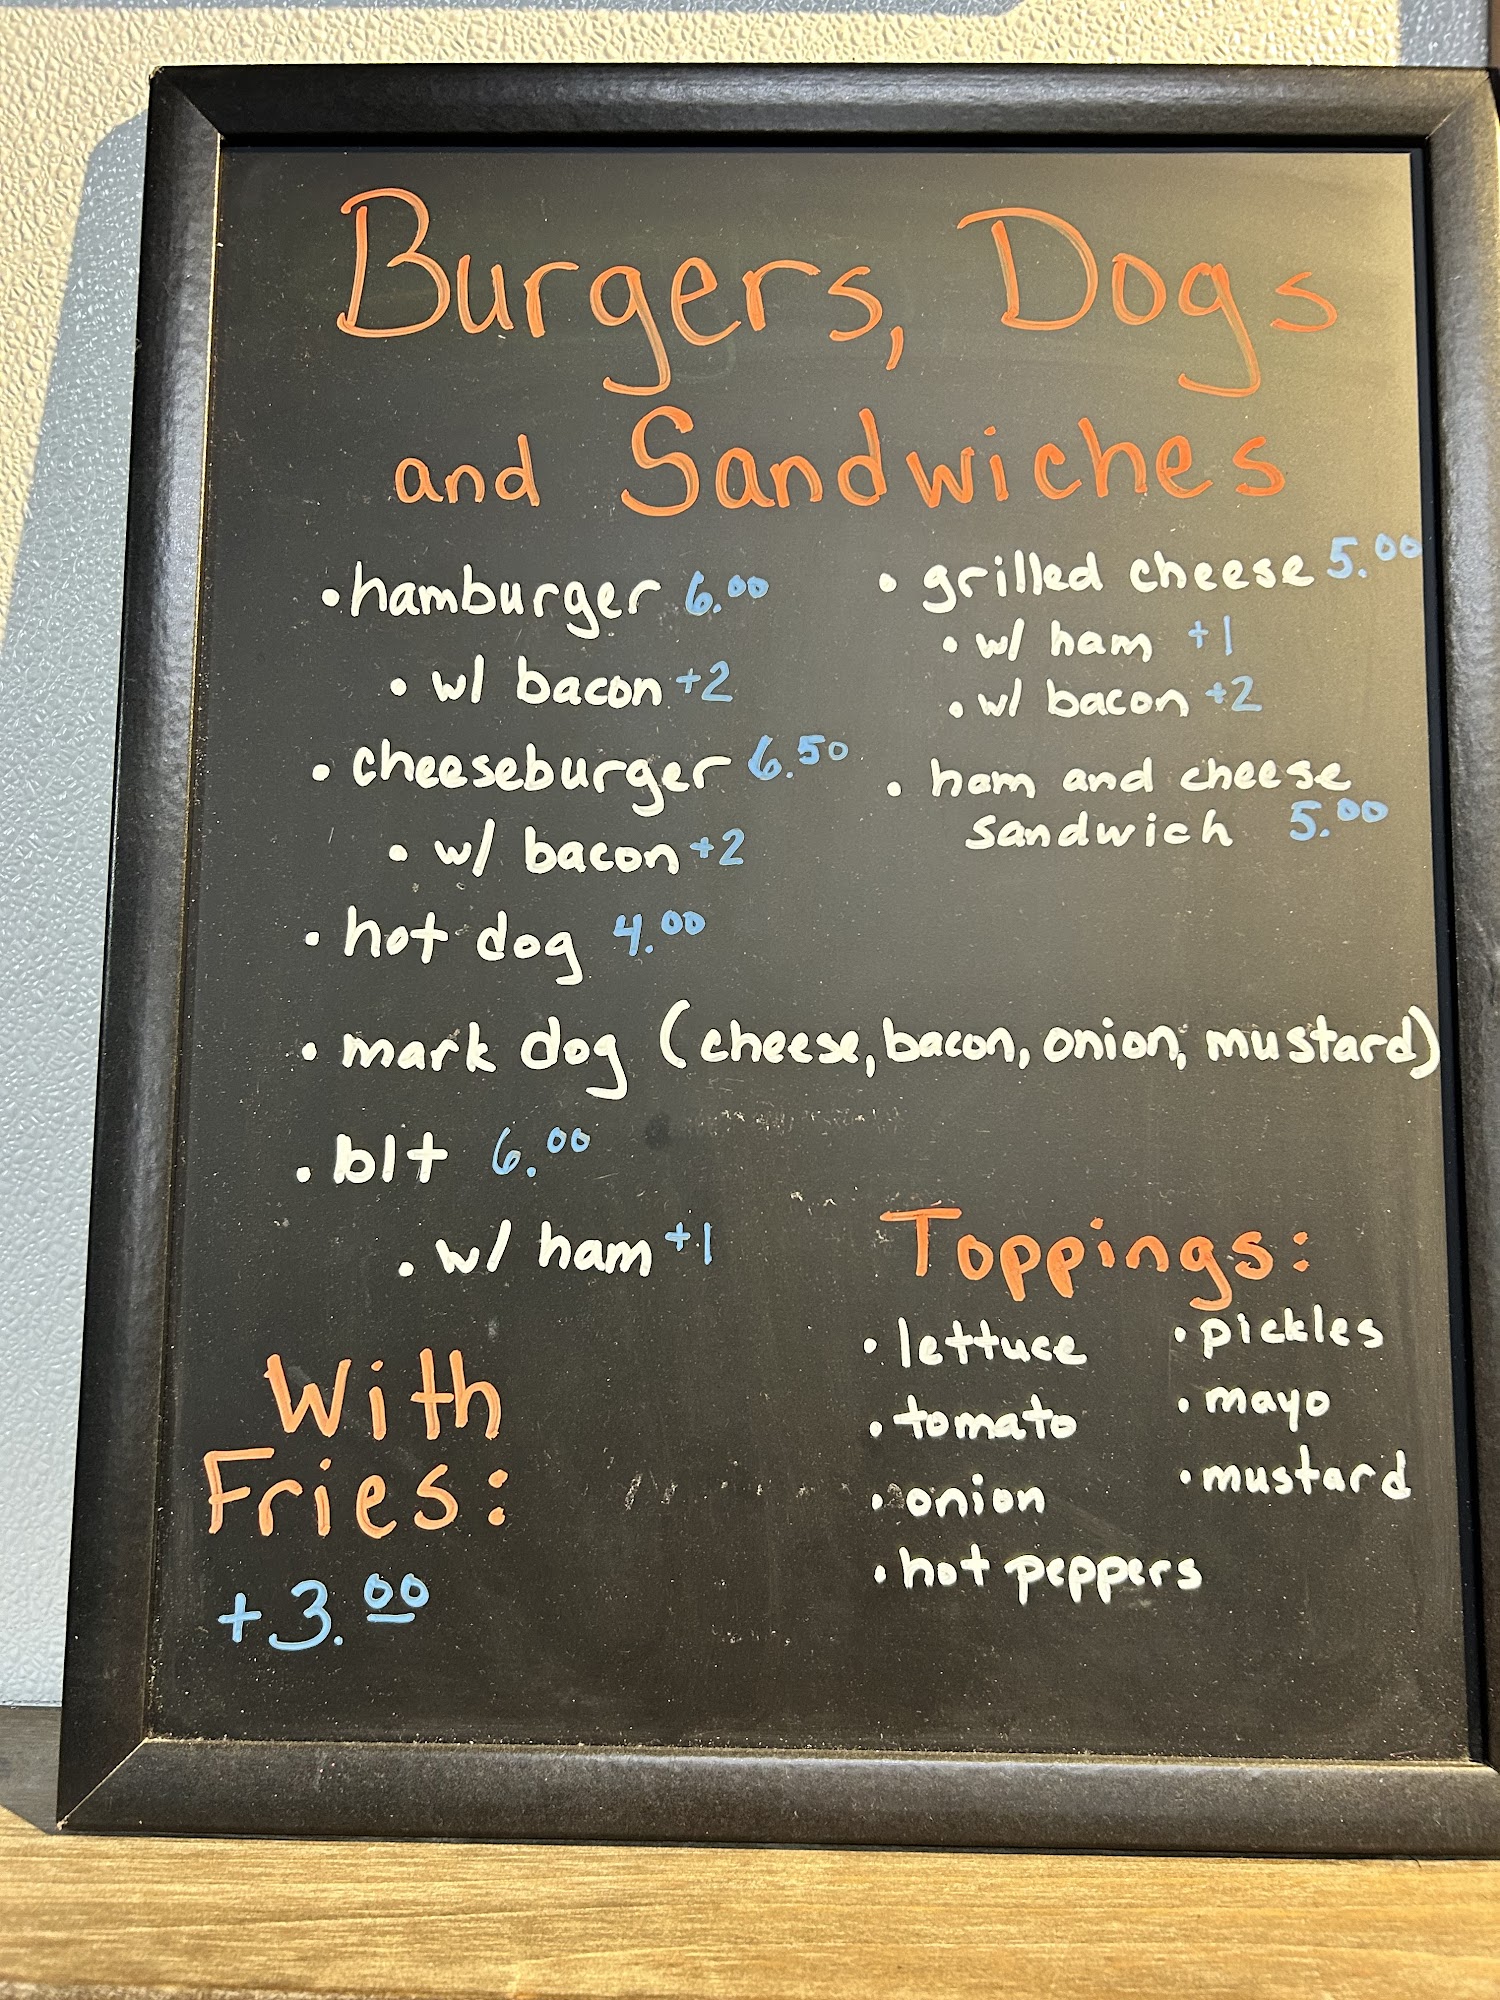 Burgers, Dogs
and Sandwiches
• hamburger 6.00
• w/ bacon +2
• cheeseburger 6.50
• w/ bacon +2
• hot dog 4.00
• grilled cheese 5.00
• w/ ham +1
• w/ bacon +2
• ham and cheese
sandwich 5.00
• mark dog (cheese, bacon, onion, mustard)
• blt 6.00
• w/ ham +1
With
Fries:
+3.00
Toppings:
• lettuce
• tomato
• onion
• hot peppers
• pickles
• mayo
• mustard